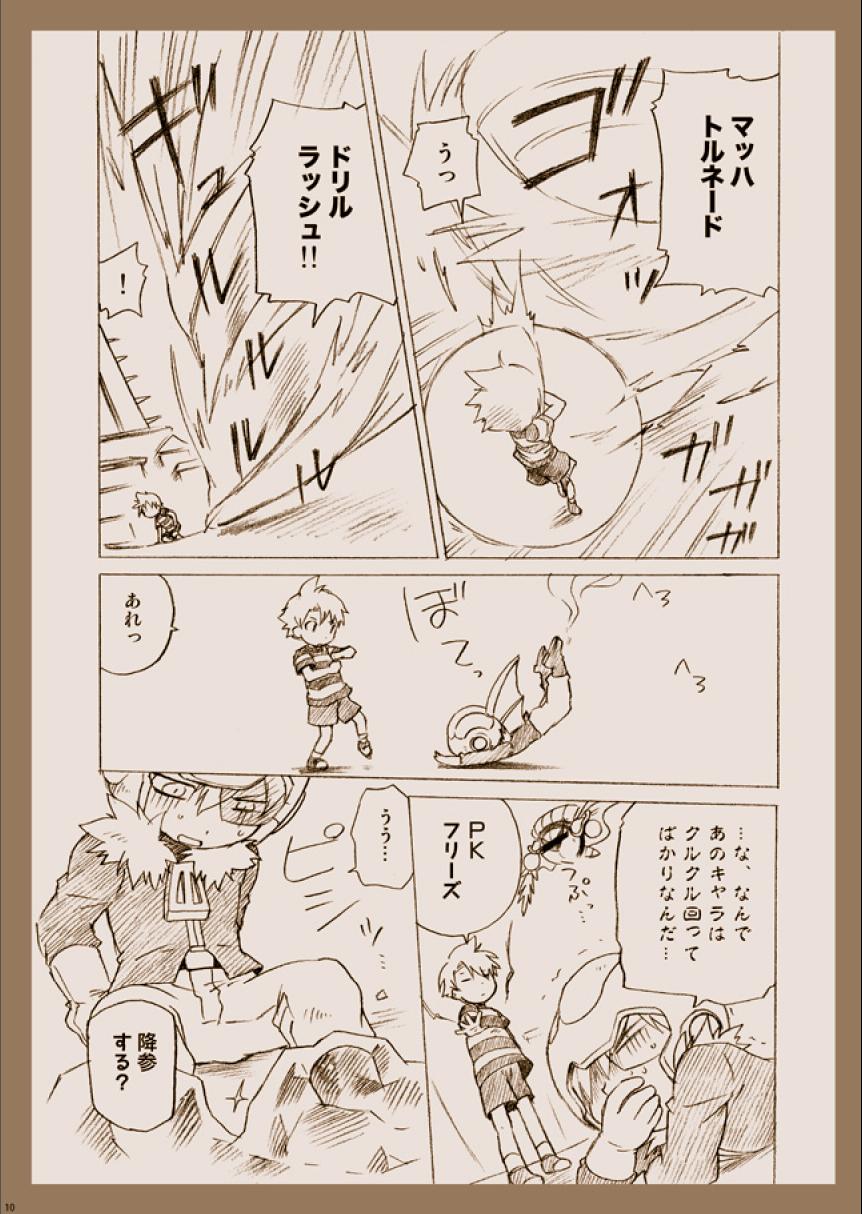 マッハ
トルネード
ゴォ
うっ
ガガガ
ドリル
ラッシュ!!
ギュルルルル
!
へろ
へろ
ぼてっ
あれっ
…な、なんで
あのキャラは
クルクル回って
ばかりなんだ…
ぷっ…
PK
フリーズ
うう…
ピシ
降参
する?
10